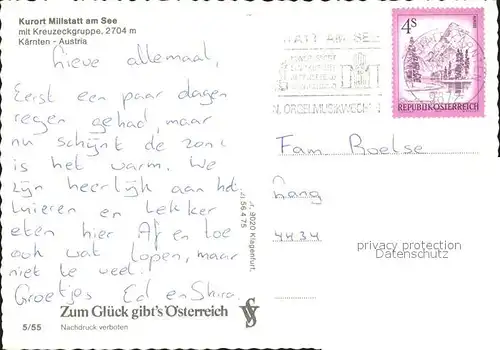 Kurort Millstatt am See
mit Kreuzeckgruppe, 2704 m
Kärnten - Austria
Lieve allemaal,
Eerst een paar dagen
regen gehad, maar
nu schijnt de zon
is het warm. We
zijn heerlijk aan het
luieren en lekker
eten hier Af en toe
ook wat lopen, maar
niet te veel.
Groetjes Ed en Shira
Zum Glück gibt's Österreich
5/55
Nachdruck verboten
9020 Klagenfurt,
56 4 75
4S
REPUBLIK ÖSTERREICH
ORGELMUSIKWOCH
Fam. Roelse
4434
privacy protection
Datenschutz